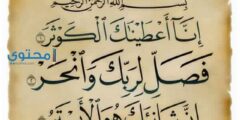 بِسْمِ اللَّهِ الرَّحْمَٰنِ الرَّحِيمِ
إِنَّا أَعْطَيْنَٰكَ الْكَوْثَرَ ١
فَصَلِّ لِرَبِّكَ وَانْحَرْ ٢
إِنَّ شَانِئَكَ هُوَ الْأَبْتَرُ
محتوي